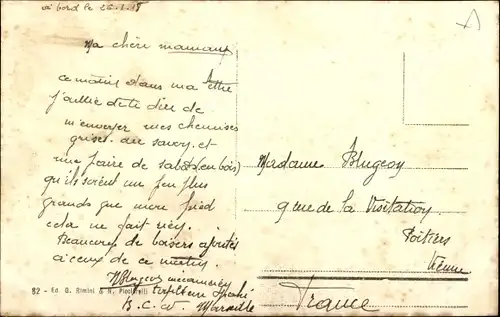 à bord le 26.1.18
Ma chère maman
ce matin dans ma lettre
j'ai oublié de te dire de
m'envoyer mes chemises
grises du savoy et
une paire de sabots (en bois)
qu'ils soient un peu plus
grands que mon pied
cela ne fait rien.
Beaucoup de baisers ajoutés
à ceux de ce matin
Blugeon mécanicien
B.C.W. Marseille
82 - Ed. G. Rimini & N. Picciarelli
Madame Blugeon
9 rue de la Visitation
Poitiers
Vienne
France